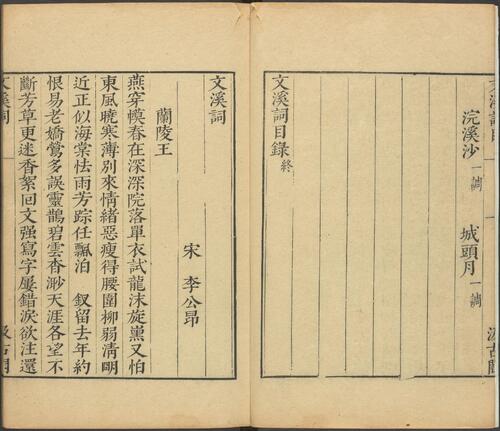 浣溪沙一調 城頭月一調
文溪詞目錄終
汲古閣
文溪詞
宋 李公昂
蘭陵王
燕穿幙春在深深院落單衣試龍沫旋薰又怕
東風曉寒薄別來情緒惡瘦得腰圍柳弱清明
近正似海棠怯雨芳踪任飄泊 釵留去年約
恨易老嬌鶯多誤靈鵲碧雲香渺天涯各望不
斷芳草更迷香絮回文强寫字屢錯淚欲注還
文溪詞
汲古閣